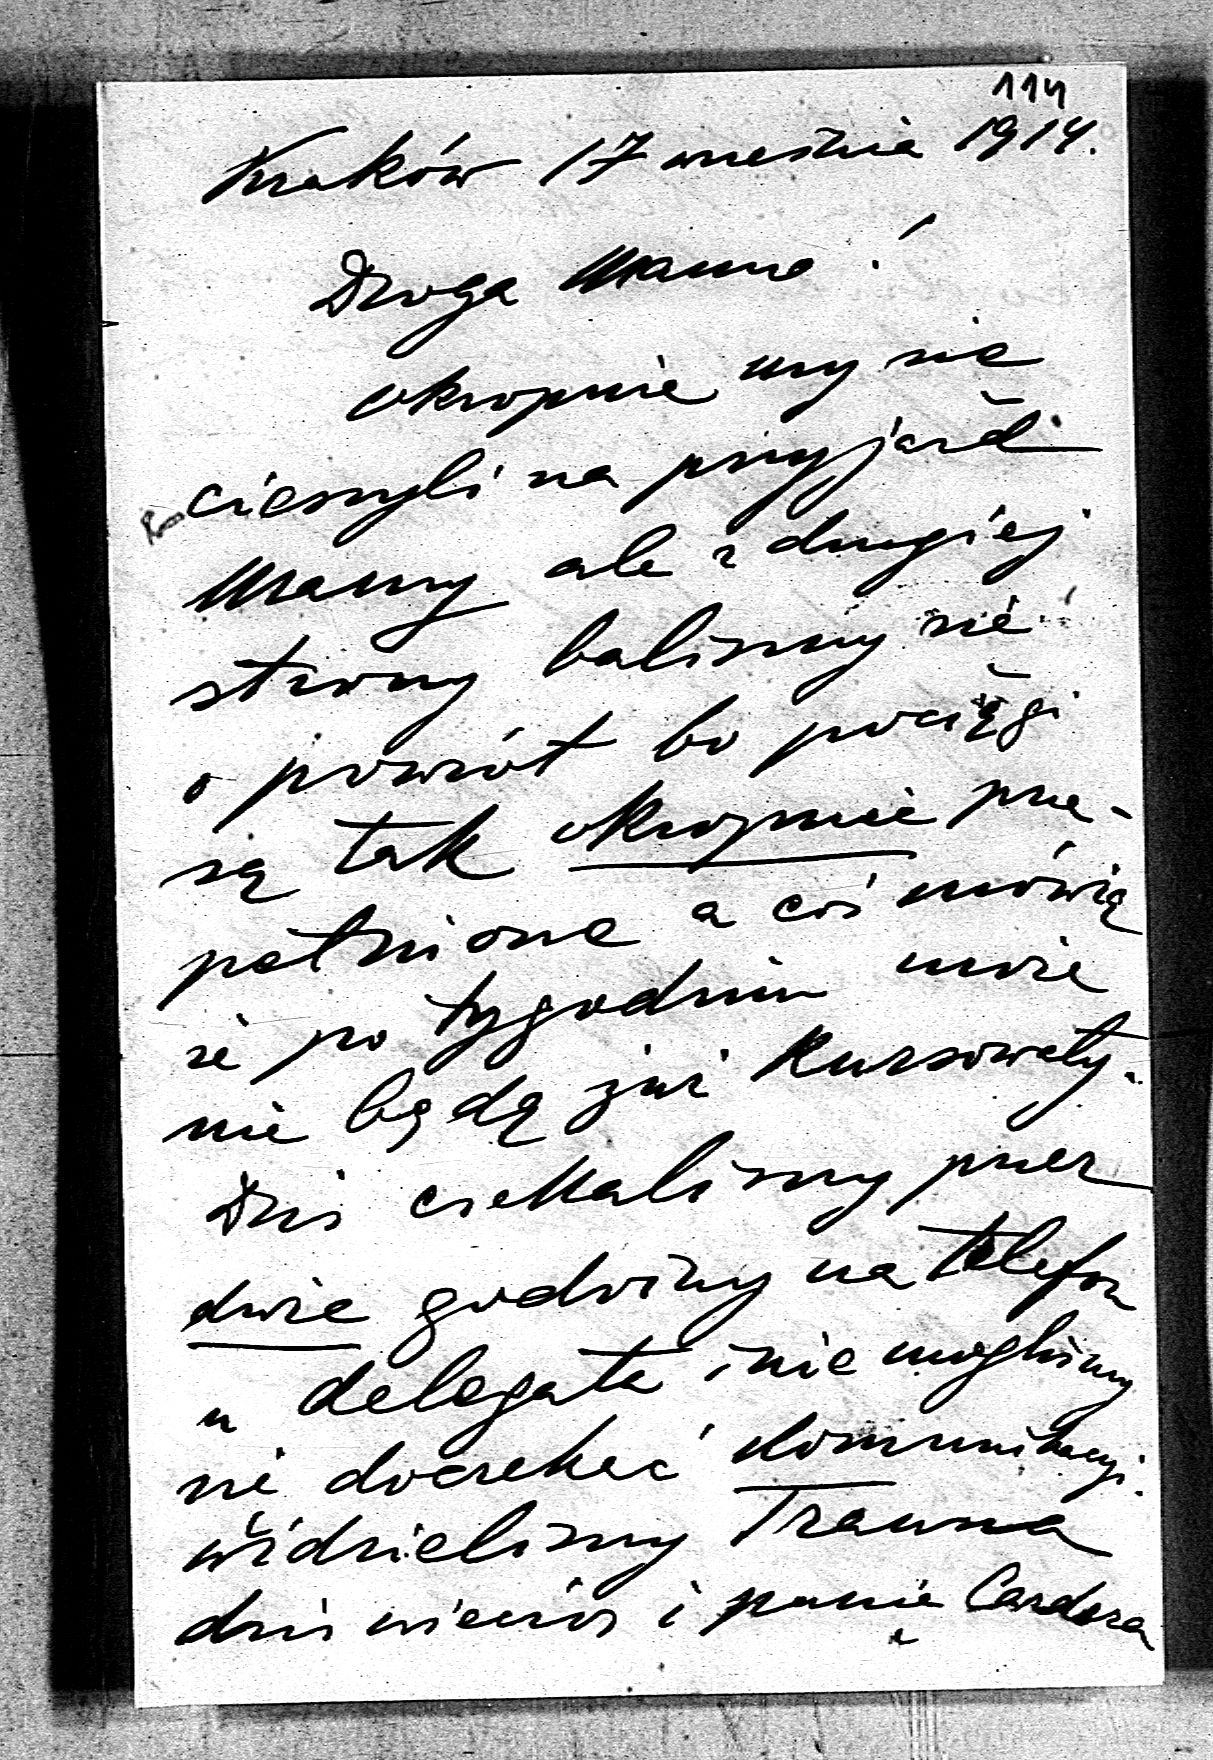 114
Kraków 17 września 1914.
Droga Mamo!
okropnie my się
cieszyli na przyjazd
Mamy ale z drugiej
strony baliśmy się
o powrót bo pociągi
są tak okropnie prze-
pełnione a coś mówią
że po tygodniu może
nie będą już kursowały.
Dziś czekaliśmy przez
dwie godziny na telefon
u delegata i nie mogliśmy
się doczekać komunikacyi.
Widzieliśmy Trauna
dziś wieczór i panią